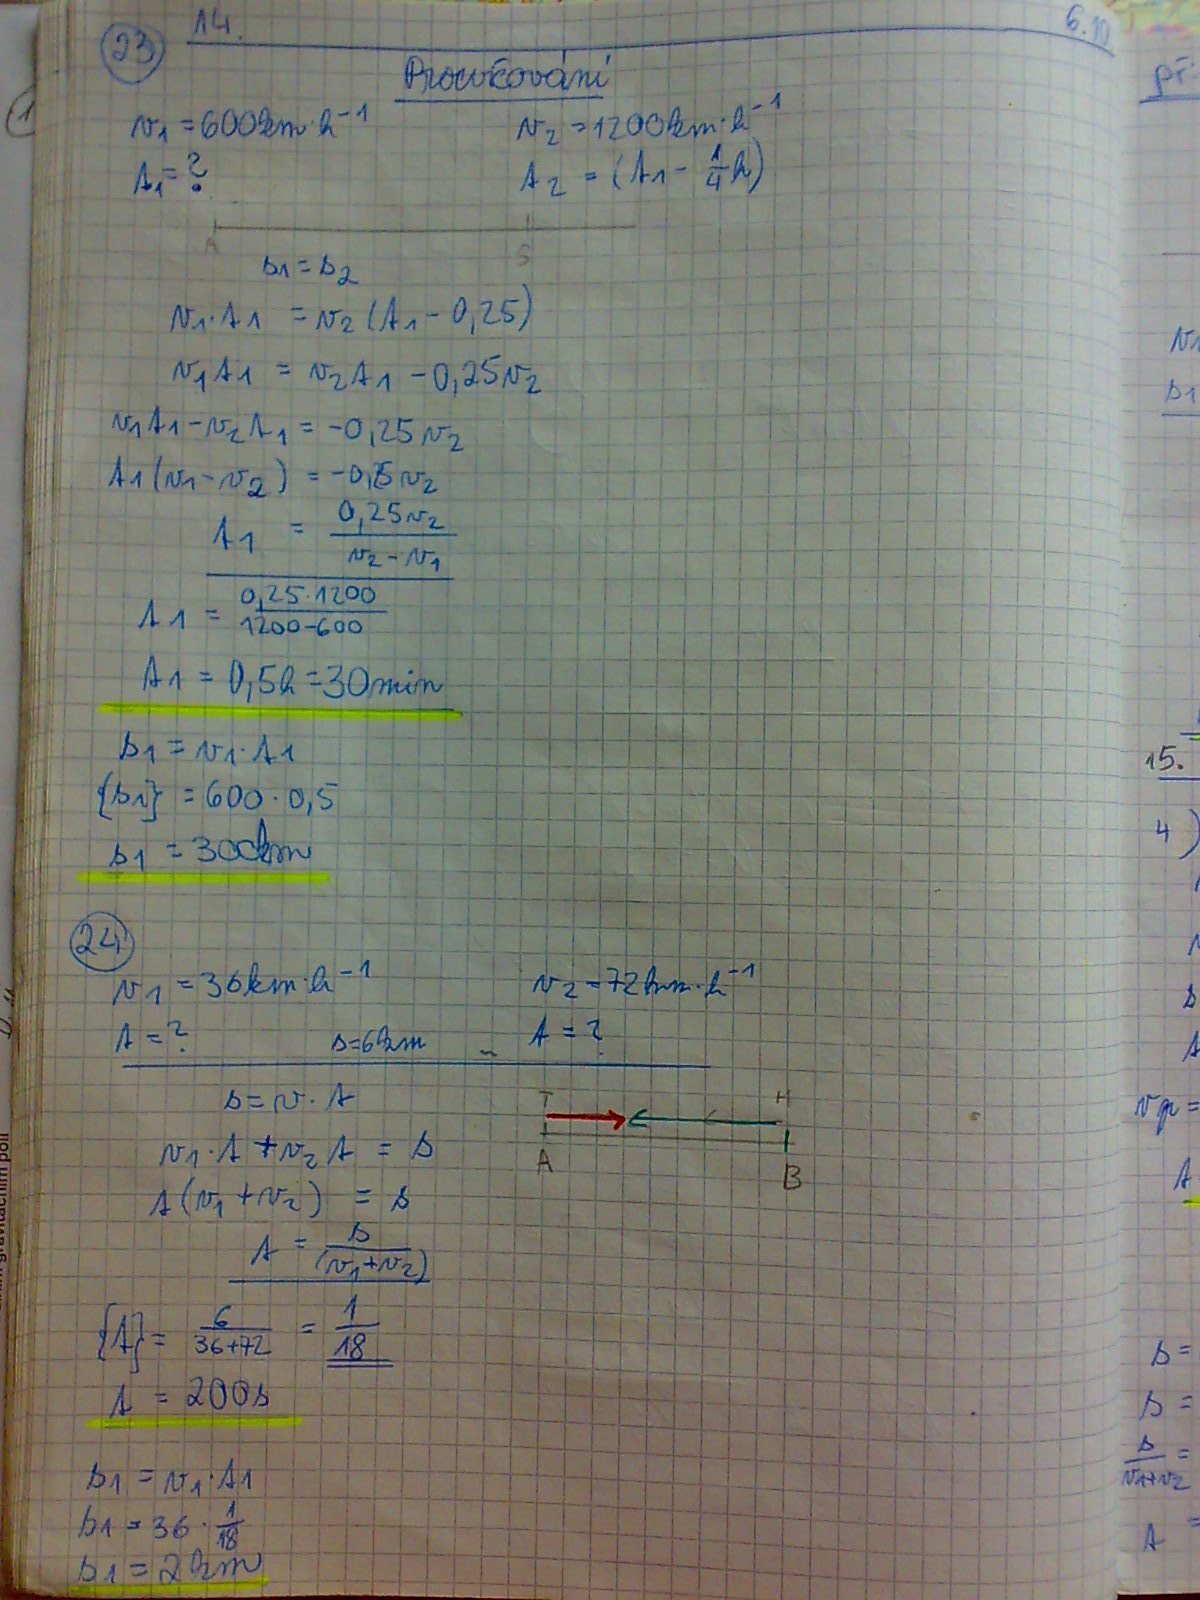 14. 6.10
23 Procvičování
v1 = 600km·h⁻¹ v2 = 1200km·h⁻¹
t1 = ? t2 = (t1 - 1/4 h)
A S
s1 = s2
v1·t1 = v2(t1 - 0,25)
v1t1 = v2t1 - 0,25v2
v1t1 - v2t1 = -0,25v2
t1(v1 - v2) = -0,25v2
t1 = 0,25v2 / v2 - v1
t1 = 0,25·1200 / 1200-600
t1 = 0,5h = 30min
s1 = v1·t1
{s1} = 600·0,5
s1 = 300km
24
v1 = 36km·h⁻¹ v2 = 72km·h⁻¹
t = ? s=6km t = ?
s = v·t
T H
v1·t + v2t = s
A B
t(v1 + v2) = s
t = s / (v1+v2)
{t} = 6 / 36+72 = 1/18
t = 200s
s1 = v1·t1
s1 = 36·1/18
s1 = 2km
př.
v1
s1
15.
4)
s
t
vp =
t
s =
s =
s / v1+v2 =
t =